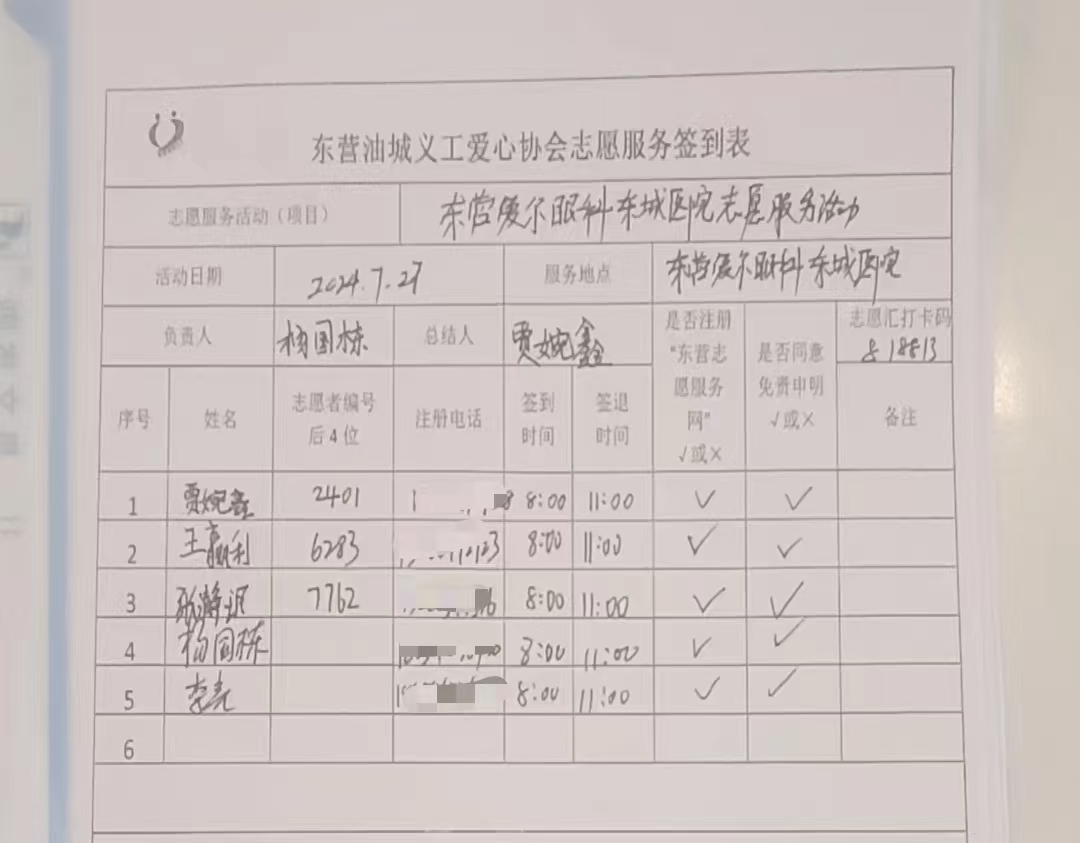 东营油城义工爱心协会志愿服务签到表
志愿服务活动（项目） 东营爱尔眼科东城医院志愿服务活动
活动日期 2024.7.27 服务地点 东营爱尔眼科东城医院
负责人 杨国栋 总结人 贾婉鑫 是否注册“东营志愿服务网”√或× 是否同意免责申明√或× 志愿汇打卡码 818813
序号 姓名 志愿者编号后4位 注册电话 签到时间 签退时间 备注
1 贾婉鑫 2401 8:00 11:00 √ √
2 王赢利 6283 8:00 11:00 √ √
3 7762 8:00 11:00 √ √
4 杨国栋 8:00 11:00 √ √
5 8:00 11:00 √ √
6